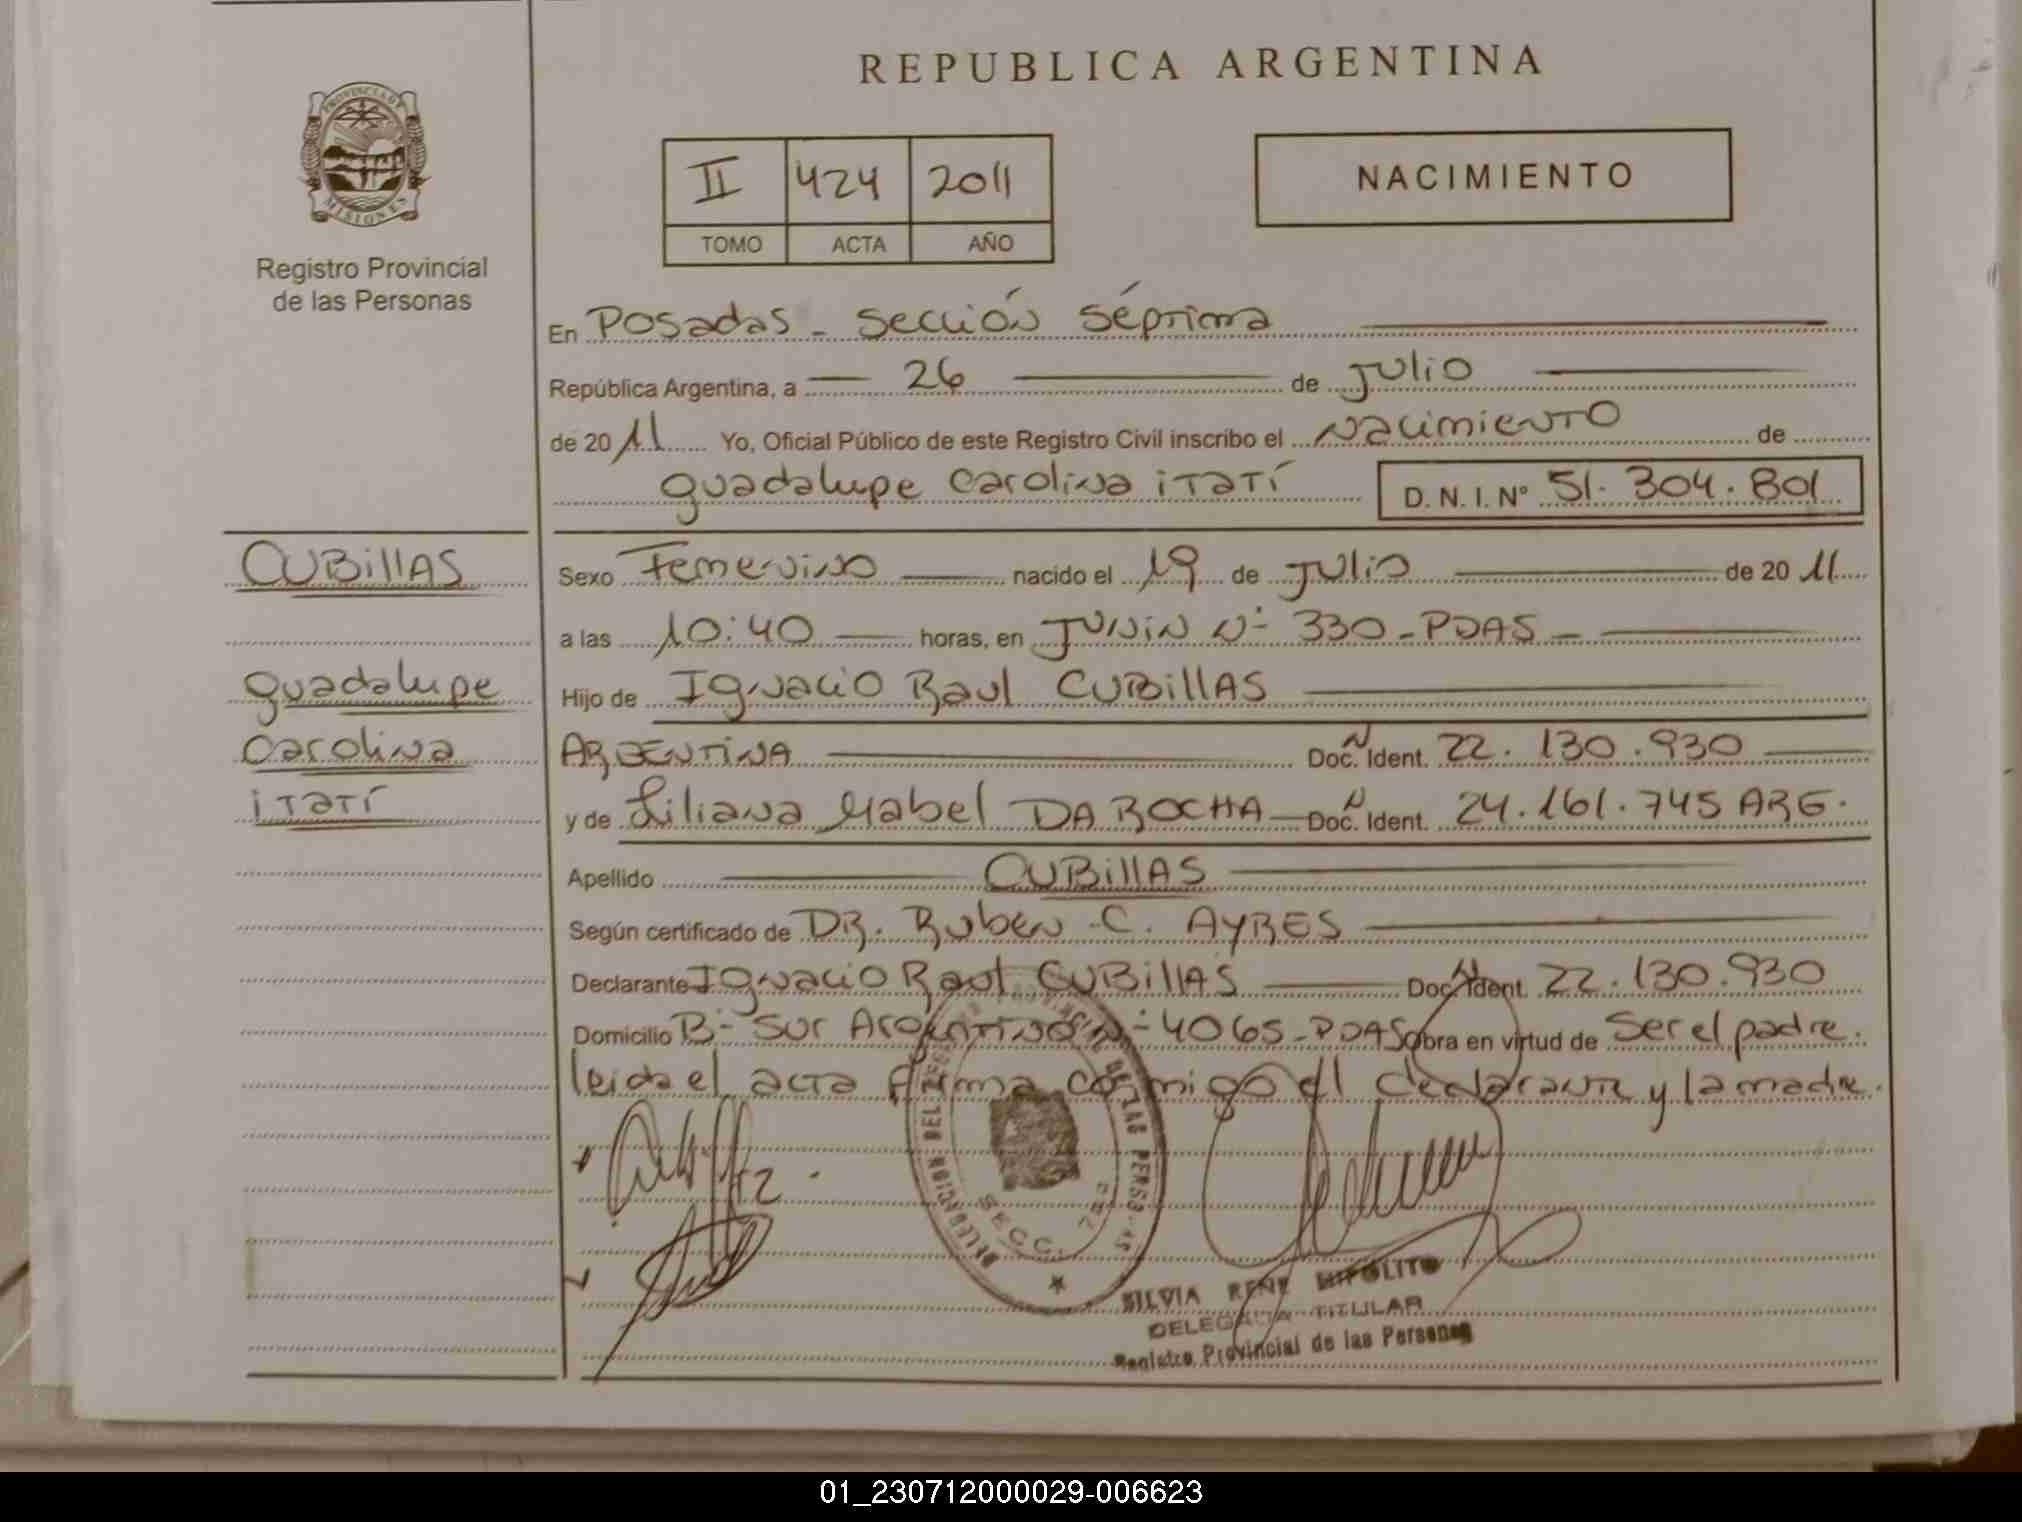 REPUBLICA ARGENTINA
PROVINCIA DE
MISIONES
Registro Provincial
de las Personas
II 424 2011
TOMO ACTA AÑO
NACIMIENTO
En Posadas - sección séptima
República Argentina, a 26 de Julio
de 2011 Yo, Oficial Público de este Registro Civil inscribo el Nacimiento de
guadalupe Carolina itatí D. N. I. Nº 51.304.801
CUBillAS
guadalupe
Carolina
itatí
Sexo Femenino nacido el 19 de Julio de 2011
a las 10:40 horas, en JUNIN Nº 330 - PDAS -
Hijo de Ignacio Raul CUBillAS
ARGENTINA Doc. N Ident. 22.130.930
y de Liliana Mabel DA ROCHA Doc. N Ident. 24.161.745 ARG.
Apellido CUBillAS
Según certificado de DR. Ruben C. AYRES
Declarante Ignacio Raul CUBillAS Doc. N Ident. 22.130.930
Domicilio B- Sur Argentino N- 4065 - PDAS Obra en virtud de Ser el padre.
leida el acta firma conmigo el declarante y la madre.
DELEGACION DEL REGISTRO PROVINCIAL DE LAS PERSONAS
SECC. 7
SILVIA RENE HIPOLITO
DELEGADA TITULAR
Registro Provincial de las Personas
01_230712000029-006623